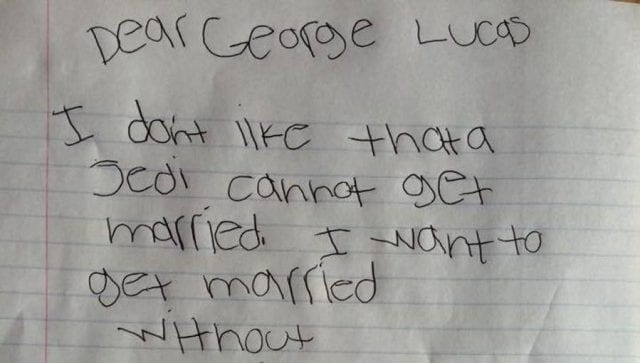 Dear George Lucas
I don't like that a
Jedi cannot get
married. I want to
get married
without